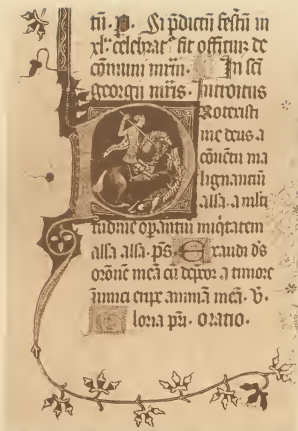 tū. P. Si p̄dictū festū in
xl.ª celebrat͛ fit offitiuz de
cōmuni mr̄m. In sc̄i
georgii mr̄is. Introitus
Protexisti
me deus a
cōuētu ma
lignantiū
alla. a mlti
tudine opantiū iniq̄tatem
alla alla. ps. Exaudi ds̄
orōne meā cū dep̄cor a timore
inimici eripe animā meā. V.
Gloria pr̄i. oratio.